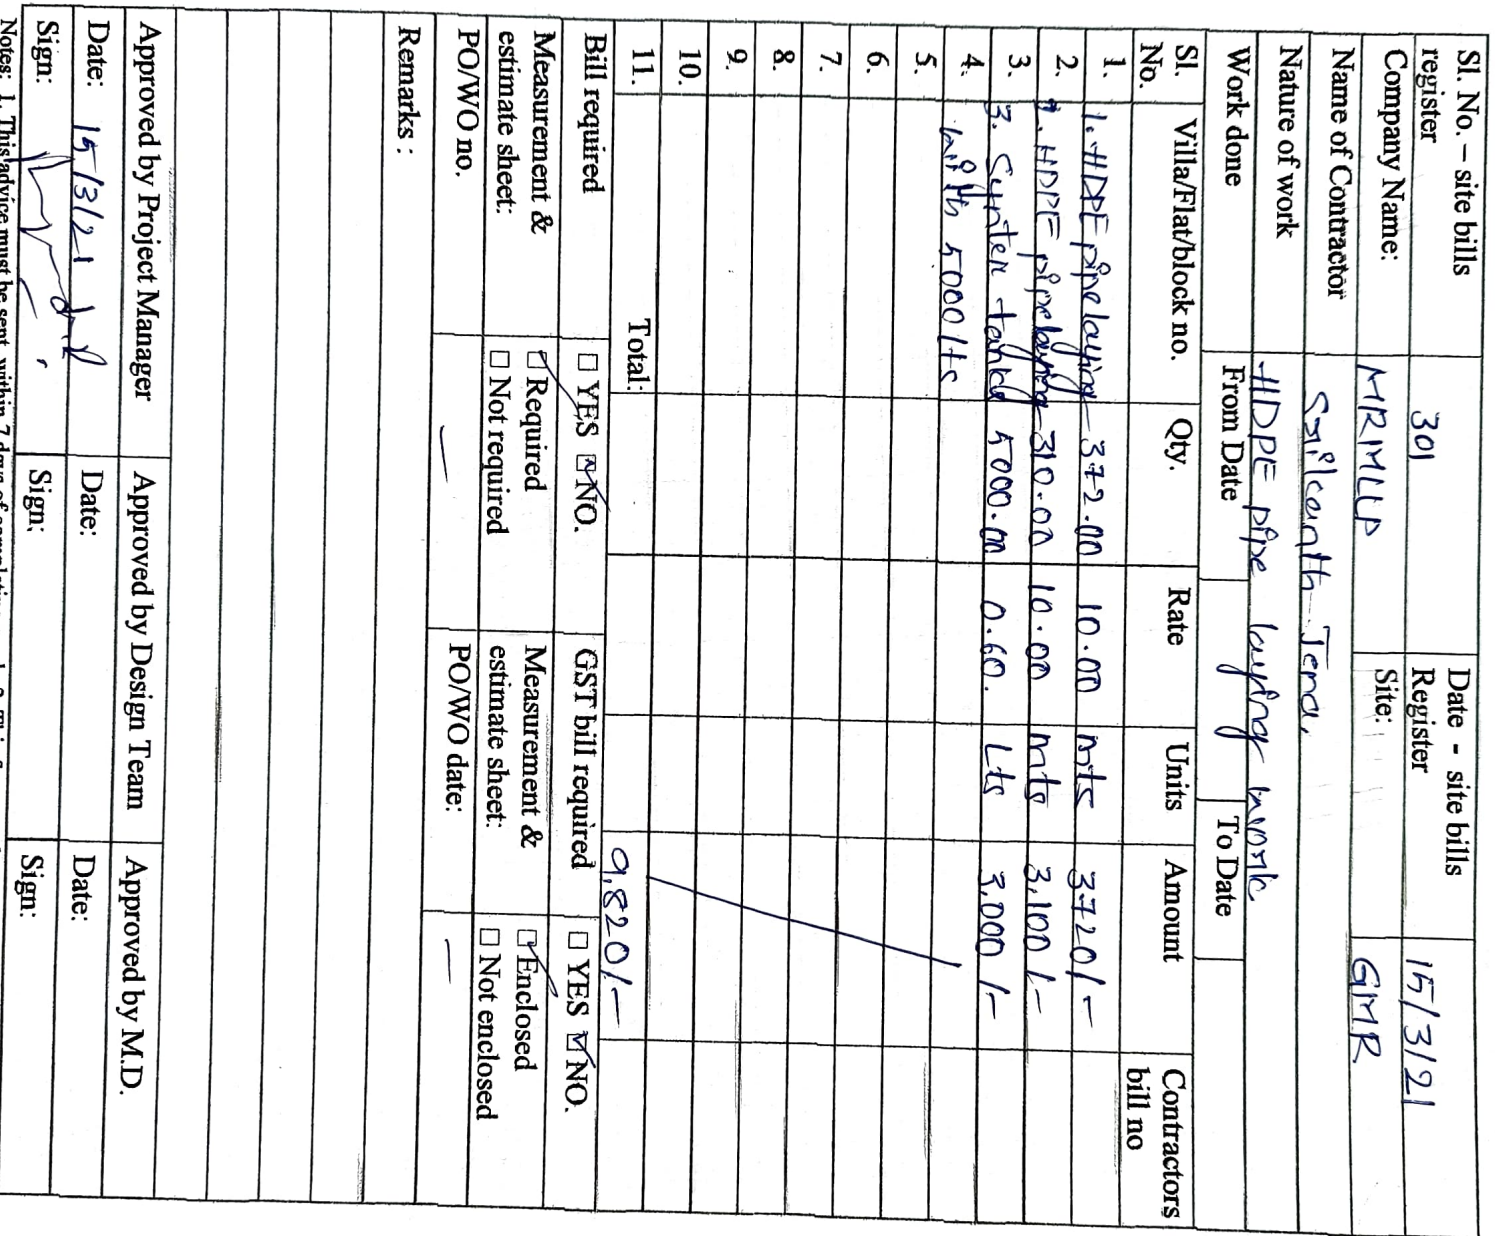 Sl. No. – site bills register 301 Date - site bills Register 15/3/21
Company Name: MRMLLP Site: GMR
Name of Contractor Srilcanth Jena,
Nature of work HDPE pipe laying work
Work done From Date To Date
Sl. No. Villa/Flat/block no. Qty. Rate Units Amount Contractors bill no
1. 1. HDPE pipe laying 372.00 10.00 mts 3720/-
2. 2. HDPE pipe laying 310.00 10.00 mts 3,100/-
3. 3. Syntex tank 5000.00 0.60. Lts 3,000/-
4. with 5000 lts
5.
6.
7.
8.
9.
10.
11. Total: 9,820/-
Bill required ☐ YES ☑ NO. GST bill required ☐ YES ☑ NO.
Measurement & estimate sheet: ☑ Required ☐ Not required Measurement & estimate sheet: ☑ Enclosed ☐ Not enclosed
PO/WO no. — PO/WO date: —
Remarks :
Approved by Project Manager Approved by Design Team Approved by M.D.
Date: 15/3/21 Date: Date:
Sign: Sign: Sign:
Notes: 1. This advice must be sent within 7 days of completion